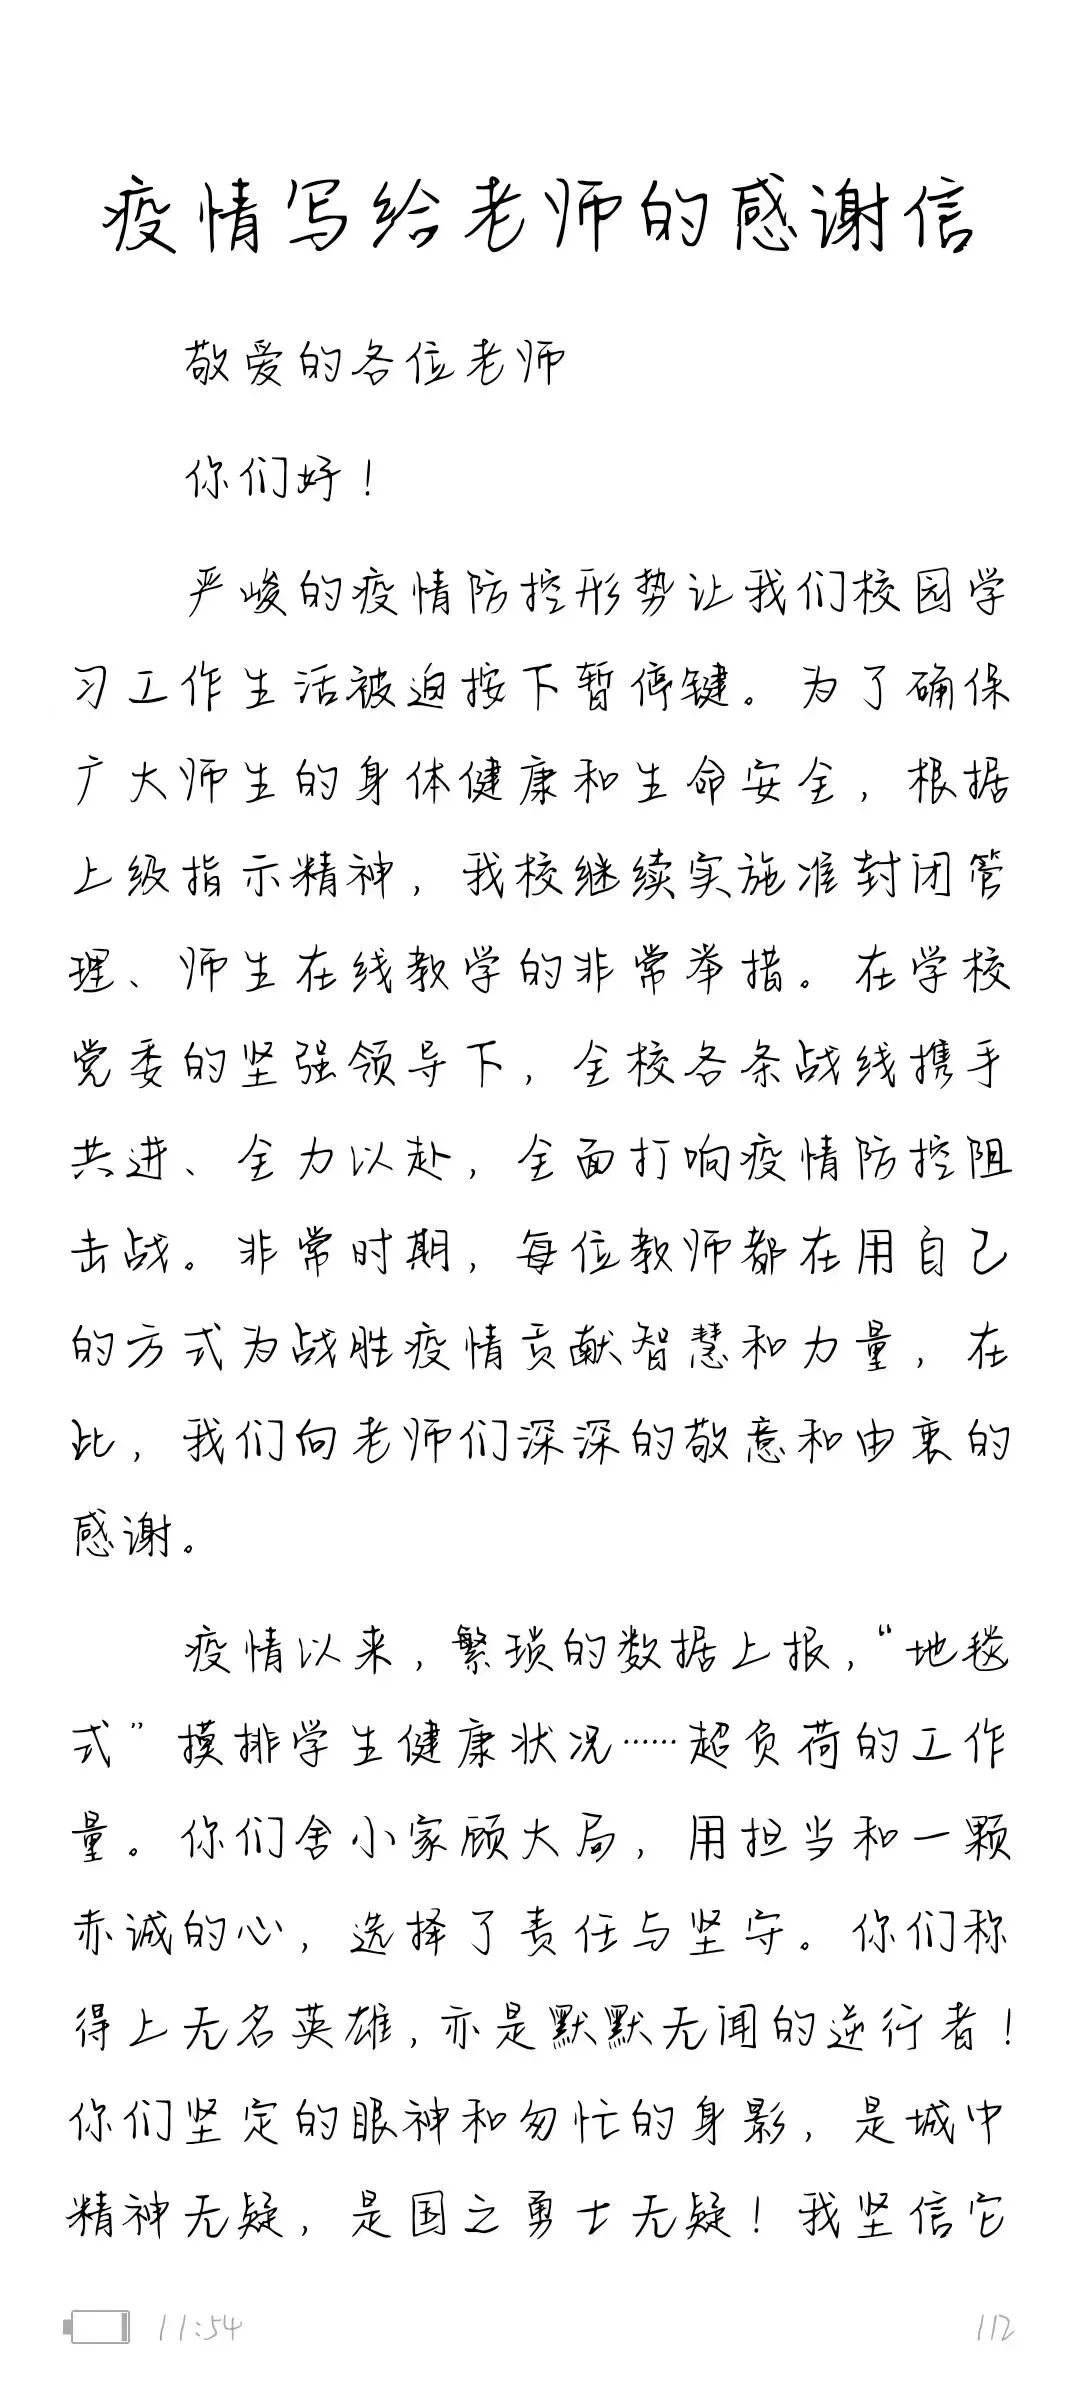 疫情写给老师的感谢信
敬爱的各位老师
你们好！
严峻的疫情防控形势让我们校园学
习工作生活被迫按下暂停键。为了确保
广大师生的身体健康和生命安全，根据
上级指示精神，我校继续实施准封闭管
理、师生在线教学的非常举措。在学校
党委的坚强领导下，全校各条战线携手
共进、全力以赴，全面打响疫情防控阻
击战。非常时期，每位教师都在用自己
的方式为战胜疫情贡献智慧和力量，在
此，我们向老师们深深的敬意和由衷的
感谢。
疫情以来，繁琐的数据上报，“地毯
式”摸排学生健康状况……超负荷的工作
量。你们舍小家顾大局，用担当和一颗
赤诚的心，选择了责任与坚守。你们称
得上无名英雄，亦是默默无闻的逆行者！
你们坚定的眼神和匆忙的身影，是城中
精神无疑，是国之勇士无疑！我坚信它
11:54
1/2